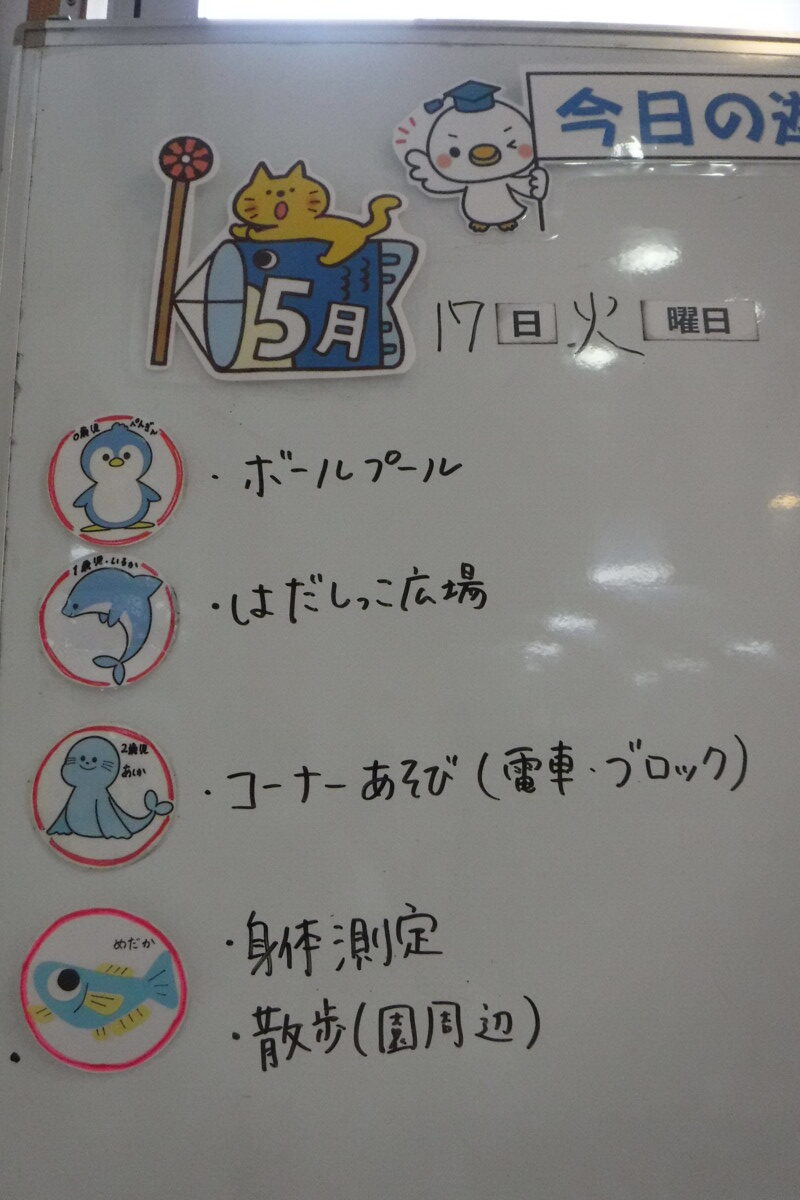 今日の遊
5月 17日 火 曜日
0歳児 ぺんぎん
・ボールプール
1歳児・いるか
・はだしっこ広場
2歳児
あしか
・コーナーあそび(電車・ブロック)
めだか
・身体測定
・散歩(園周辺)